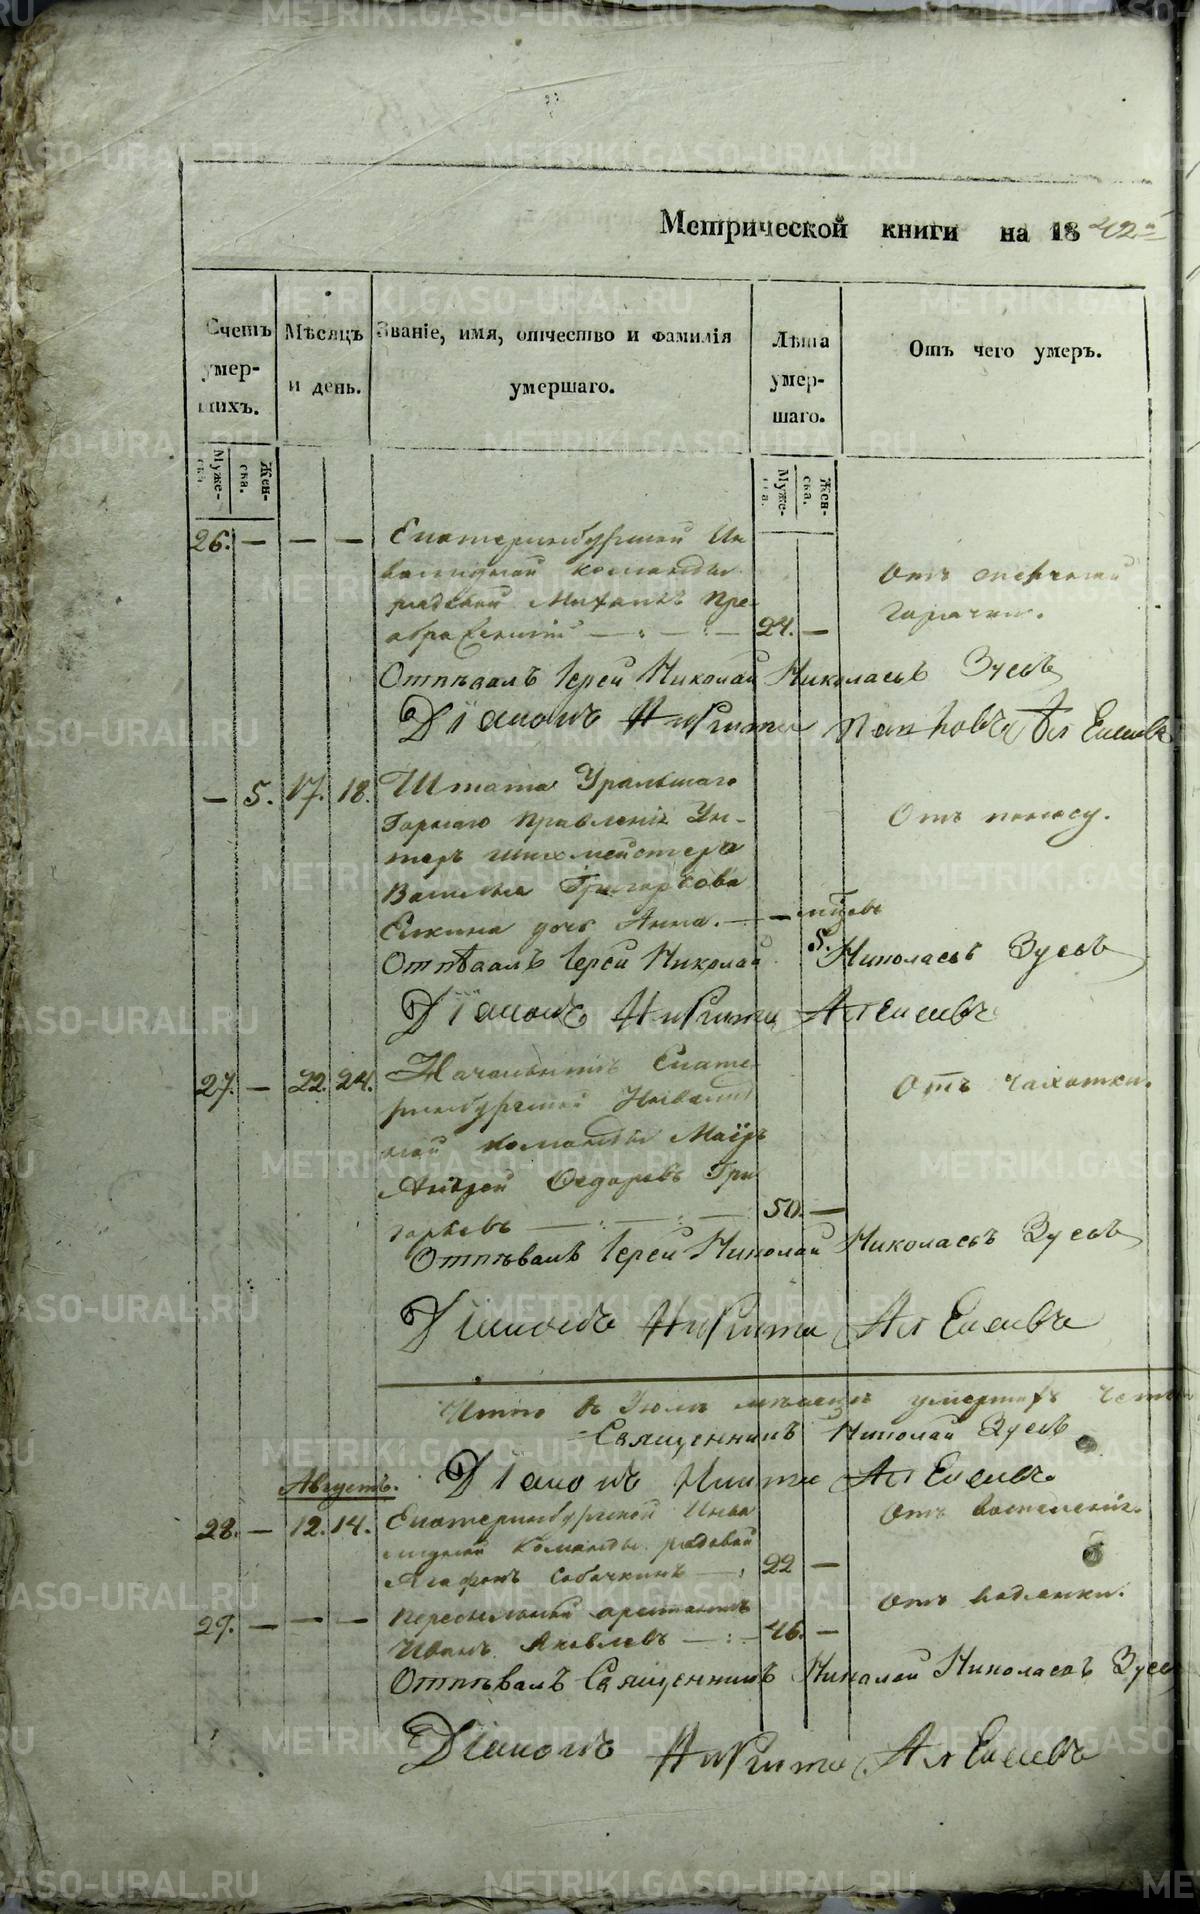 Метрической книги на 1842й
Счетъ умер- шихъ.
Мѣсяцъ и день.
Званіе, имя, отчество и фамилія умершаго.
Лѣта умер- шаго.
Отъ чего умеръ.
Муже- ска.
Жен- ска.
Муже- ска.
Жен- ска.
26. — — — Екатеринбургской Ин
валидной команды
рядовой Михаилъ Пре-
ображенскій — 24. —
Отъ
горячки.
Отпѣвалъ Іерей Николай Николаевъ Зуевъ
Діаконъ Никита Алексеевъ
— 5. 17. 18. Штата Уральскаго
Горнаго Правленія Ун-
теръ шихмейстера
Василья Григорьева
Елкина дочь Анна. — — мцовъ
5.
Отъ поносу.
Отпѣвалъ Іерей Николай Николаевъ Зуевъ
Діаконъ Никита Алексеевъ
27. — 22. 24. Начальникъ Екате-
ринбургской Инвалид
ной команды Маіоръ
Андрей Федоровъ Гри
горьевъ — 50. —
Отъ чахотки.
Отпѣвалъ Іерей Николай Николаевъ Зуевъ
Діаконъ Никита Алексеевъ
Итого въ Іюлѣ мѣсяцѣ умершихъ
Священникъ Николай Зуевъ
Діаконъ Никита Алексеевъ.
Августъ.
28. — 12. 14. Екатеринбургской Инва
лидной Команды рядовой
Агафонъ Собачкинъ — 22 —
Отъ воспаленія.
29. — — — Пересыльный арестантъ
Иванъ Яковлевъ — 46. —
Отъ водянки.
Отпѣвалъ Священникъ Николай Николаевъ Зуев
Діаконъ Никита Алексеевъ
METRIKI.GASO-URAL.RU